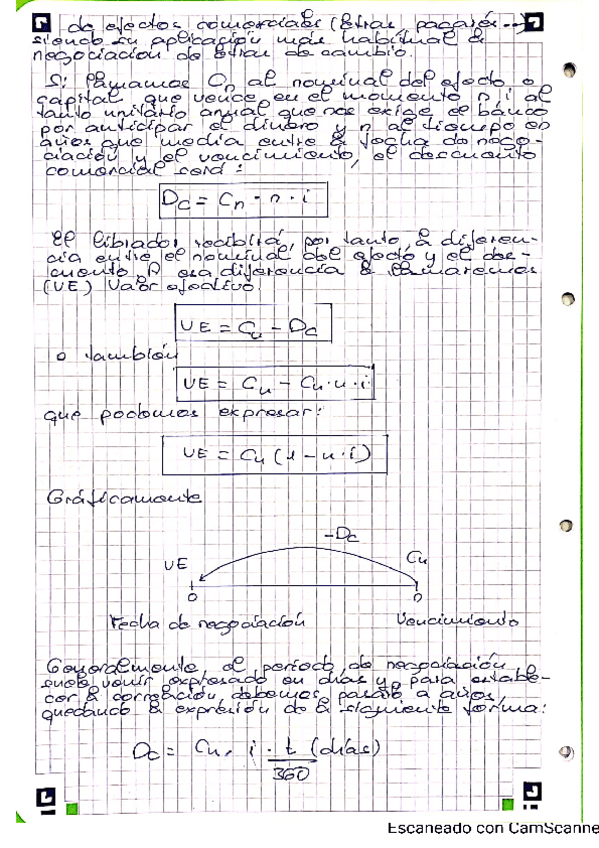 de efectos comerciales (letras, pagarés...)
siendo su aplicación más habitual la
negociación de letras de cambio.
Si llamamos Cn al nominal del efecto o
capital que vence en el momento n, i al
tanto unitario anual que nos exige el banco
por anticipar el dinero y n al tiempo en
años que media entre la fecha de nego-
ciación y el vencimiento, el descuento
comercial será:
Dc = Cn · n · i
El librador recibirá, por tanto, la diferen-
cia entre el nominal del efecto y el des-
cuento. A esa diferencia la llamaremos
(VE) Valor efectivo.
VE = Cn - Dc
o también
VE = Cn - Cn · n · i
que podemos expresar:
VE = Cn (1 - n · i)
Gráficamente
-Dc
VE Cn
0 n
Fecha de negociación Vencimiento
Generalmente, el período de negociación
suele venir expresado en días y, para estable-
cer la correlación, debemos pasarlo a años,
quedando la expresión de la siguiente forma:
Dc = Cn · i · t (días)
360
Escaneado con CamScanne